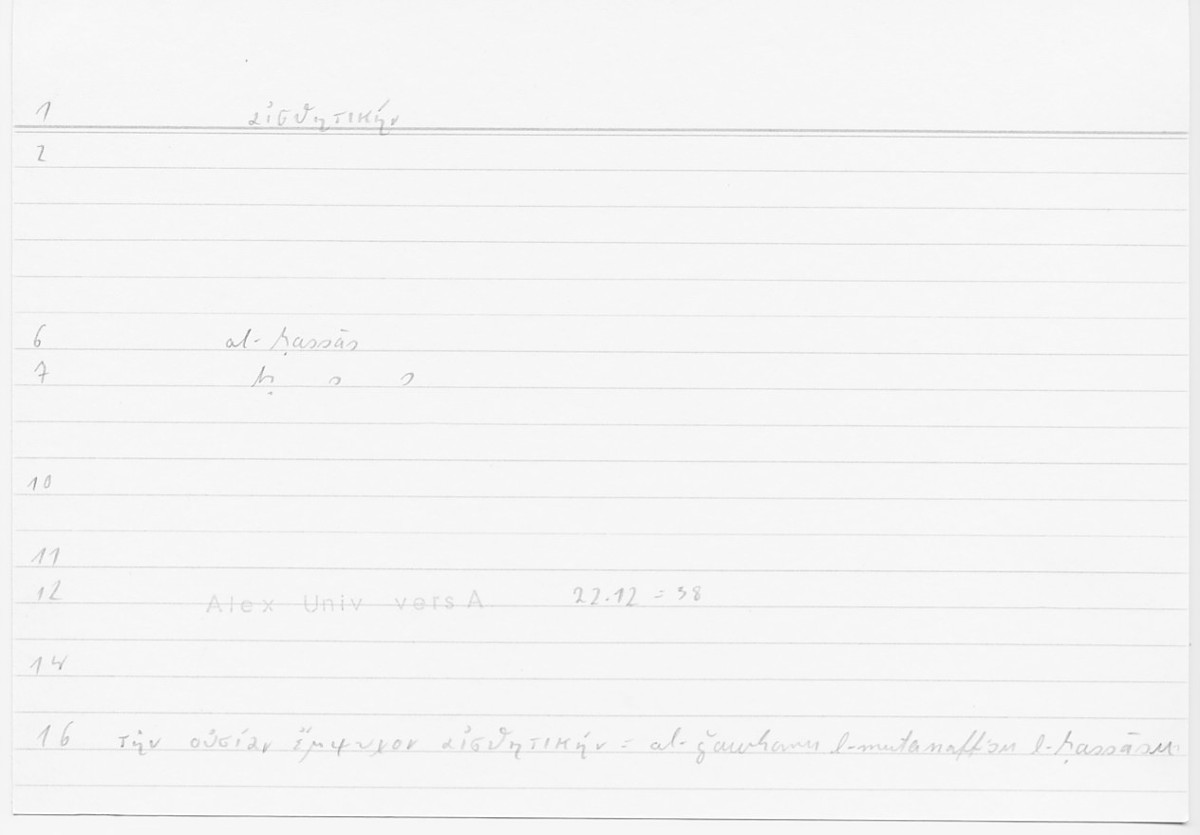 1 αἰσθητικήν
2
6 al-ḥassās
7 ḥ s s
10
11
12 Alex Univ vers A 22.12 = 58
14
16 τὴν οὐσίαν ἔμψυχον αἰσθητικήν = al-ǧawharu l-mutanaffisu l-ḥassāsu